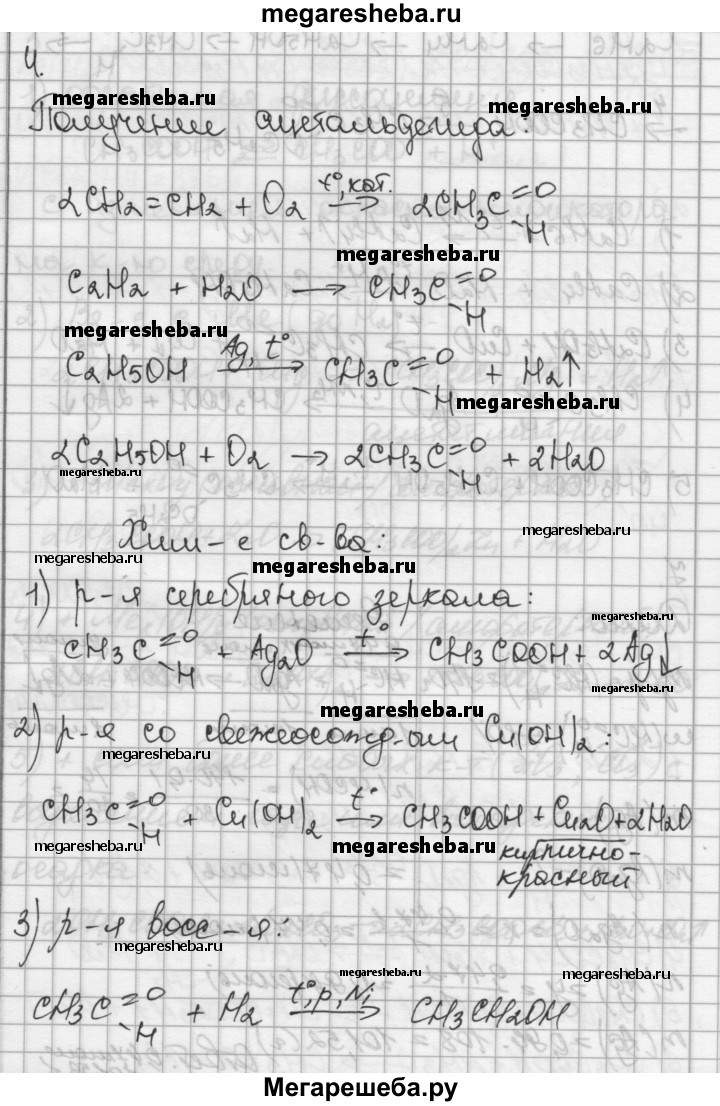 megaresheba.ru
4.
megaresheba.ru
megaresheba.ru
Получение ацетальдегида:
2CH2=CH2 + O2 t°, кат. → 2CH3C=O
H
megaresheba.ru
C2H2 + H2O → CH3C=O
H
megaresheba.ru
C2H5OH Ag, t° → CH3C=O + H2↑
H
megaresheba.ru
2C2H5OH + O2 → 2CH3C=O + 2H2O
H
megaresheba.ru
Хим-е св-ва:
megaresheba.ru
megaresheba.ru
megaresheba.ru
1) р-я серебряного зеркала:
megaresheba.ru
CH3C=O + Ag2O t° → CH3COOH + 2Ag↓
H
megaresheba.ru
megaresheba.ru
2) р-я со свежеосажд-ым Cu(OH)2:
megaresheba.ru
megaresheba.ru
CH3C=O + Cu(OH)2 t° → CH3COOH + Cu2O + 2H2O
H
megaresheba.ru
кирпично-
красный
3) р-я восс-я:
megaresheba.ru
megaresheba.ru
megaresheba.ru
CH3C=O + H2 t°, p, Ni → CH3CH2OH
H
Мегарешеба.ру